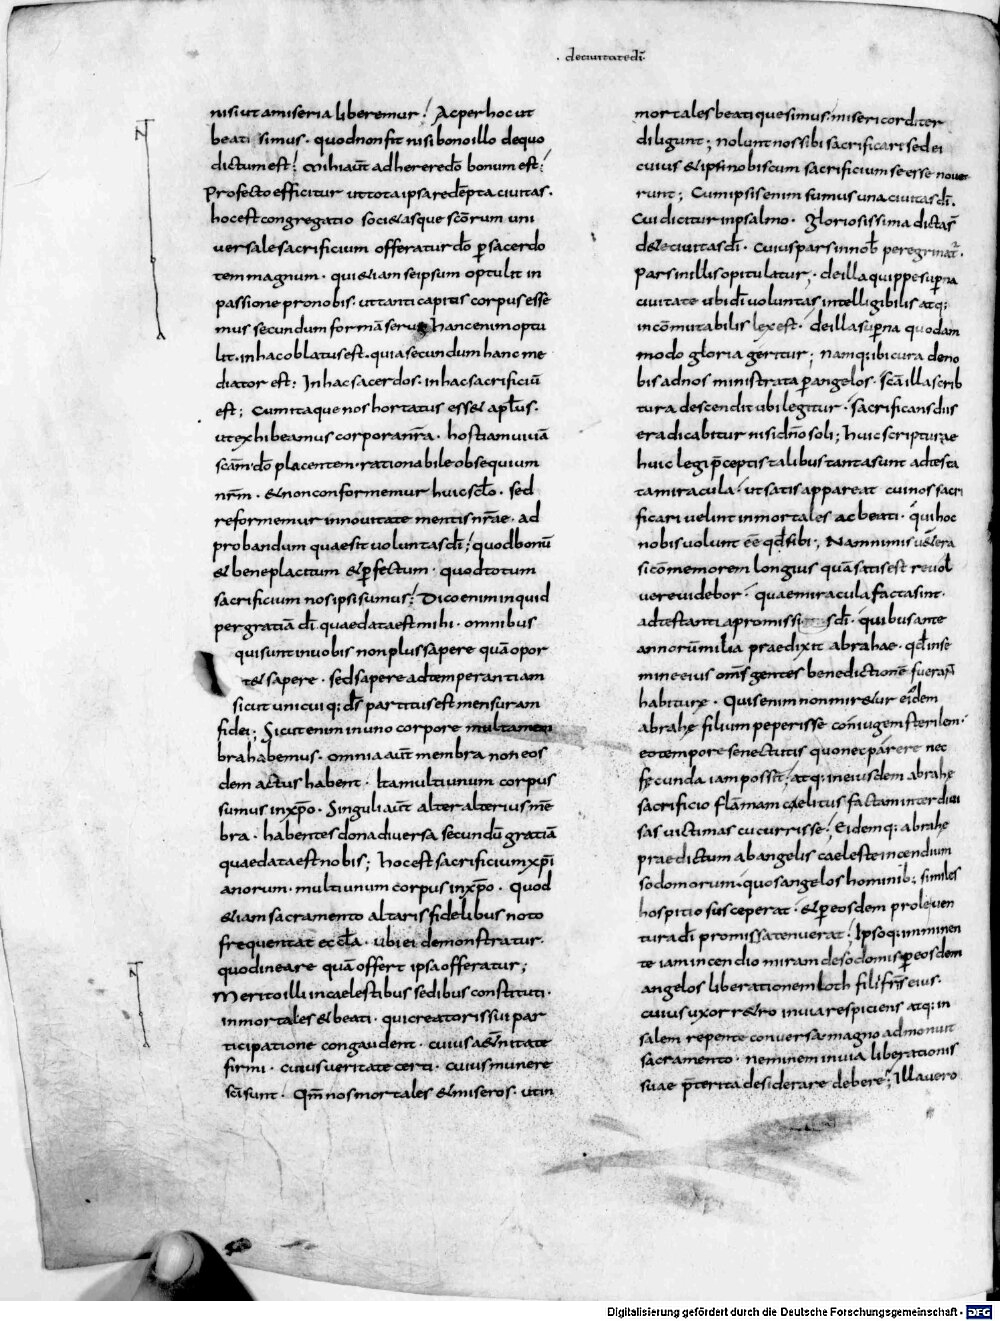 · deciuitatedī ·
nisiut amiseria liberemur! Acperhocut
beati simus · quodnonfit nisi bonoillo dequo
dictum est! mihiaut̄ adherered̄o bonum est!
Profecto efficitur uttota ipsaredēpta ciuitas ·
hocest congregatio societasque sc̄orum uni
uersalesacrificium offeraturd̄o p̄ sacerdo
tem magnum · quietiam seipsum optulit in
passione pronobis · uttanti capitis corpus esse
mus secundum formā serui hancenimoptu
lit · inhacoblatusest · quiasecundum hanc me
diator est: Inhacsacerdos · inhacsacrificiū
est; Cumitaque nos hortatus esset apl̄us ·
utexhibeamus corporanr̄a · hostiamuiuā
sc̄am · d̄o placentem · rationabile obsequium
nr̄m · etnonconformemur huic scl̄o · sed
reformemur innouitate mentisnr̄ae · ad
probandum quaesit uoluntasdī; quodbonū
et beneplacitum etp̄fectum · quodtotum
sacrificium nosipsisumus! Dicoeniminquid
pergratiā dī quaedataest mihi · omnibus
quisuntinuobis nonplussapere quā opor
tet sapere · sedsapere adtemperantiam
sicut unicuiq: d̄s partitusest mensuram
fidei; Sicutenim inuno corpore multamem
brahabemus · omnia aut̄ membra non eos
dem actus habent · Itamultiunum corpus
sumus inxp̄o · Singuliaut̄ alteralterius mē
bra · habentes donadiuersa secundū gratiā
quaedataestnobis; hocest sacrificiumxp̄i
anorum · multiunum corpus inxp̄o · quod
etiam sacramento altaris fidelibus noto
frequentat eccl̄a · ubiei demonstratur ·
quodineare quā offert ipsaofferatur;
Merito illi incaelestibus sedibus constituti ·
inmortales et beati · quicreatorissui par
ticipatione congaudent · cuiusaet̄nitate
firmi · cuius ueritate certi · cuius munere
sc̄isunt · Qm̄ nos mortales etmiseros · utin
mortales beatiquesimus · misericorditer
diligunt; nolunt nossibi sacrificari sedei
cuius etipsi nobiscum sacrificiumseesse noue
runt; Cumipsisenim sumus una ciuitasdī ·
Cui dicitur inpsalmo · Gloriosissima dictas̄
deteciuitasdī · Cuiuspars innob̄ peregrinat̄ ·
Pars inillis opitulatur; deillaquippesup̄na
ciuitate ubidī uoluntas intelligibilis atq:
incōmutabilis lex est · deillasup̄na quodam
modo gloria geritur; namqibi cura deno
bis adnos ministrata p̄angelos · sc̄a illascrib
tura descendit ubilegitur · sacrificansdiis
eradicabitur nisidn̄osoli; huic scripturae
huic legi p̄ceptis talibus tantasunt adtesta
tamiracula · ut satis appareat cuinossacri
ficari uelint inmortales ac beati · quihoc
nobis uolunt eē qd̄sibi; Namnimis uetera
sicōmemorem longius quā satisest reuol
uereuidebor · quaemiracula factasint ·
adtestantia promissi sdī · quibus ante
annorūmilia praedixit abrahae · qd̄inse
mineeius om̄s gentes benedictionē fuerant̄
habiturę · Quisenim nonmiretur eidem
abrahę filium peperisse coniugem sterilem ·
eotempore senectutis quonecparere nec
fęcunda iampossit; atq: ineiusdem abrahę
sacrificio flāmam caelitus factaminterdiui
sas uictimas cucurrisse! Eidemq: abrahę
praedictum abangelis caelesteincendium
sodomorum · quosangelos hominib: similes
hospitio susceperat · etp̄eosdem proleuen
turadī promissatenuerat! Ipsoq: imminen
te iam incendio miram desodomis p̄eosdem
angelos liberationem Loth filii fr̄is eius ·
cuius uxor retro inuiarespiciens atq: in
salem repente conuersa magno admonuit
sacramento · neminem inuia liberationis
suae p̄terita desiderare debere; Illauero
Digitalisierung gefördert durch die Deutsche Forschungsgemeinschaft - DFG